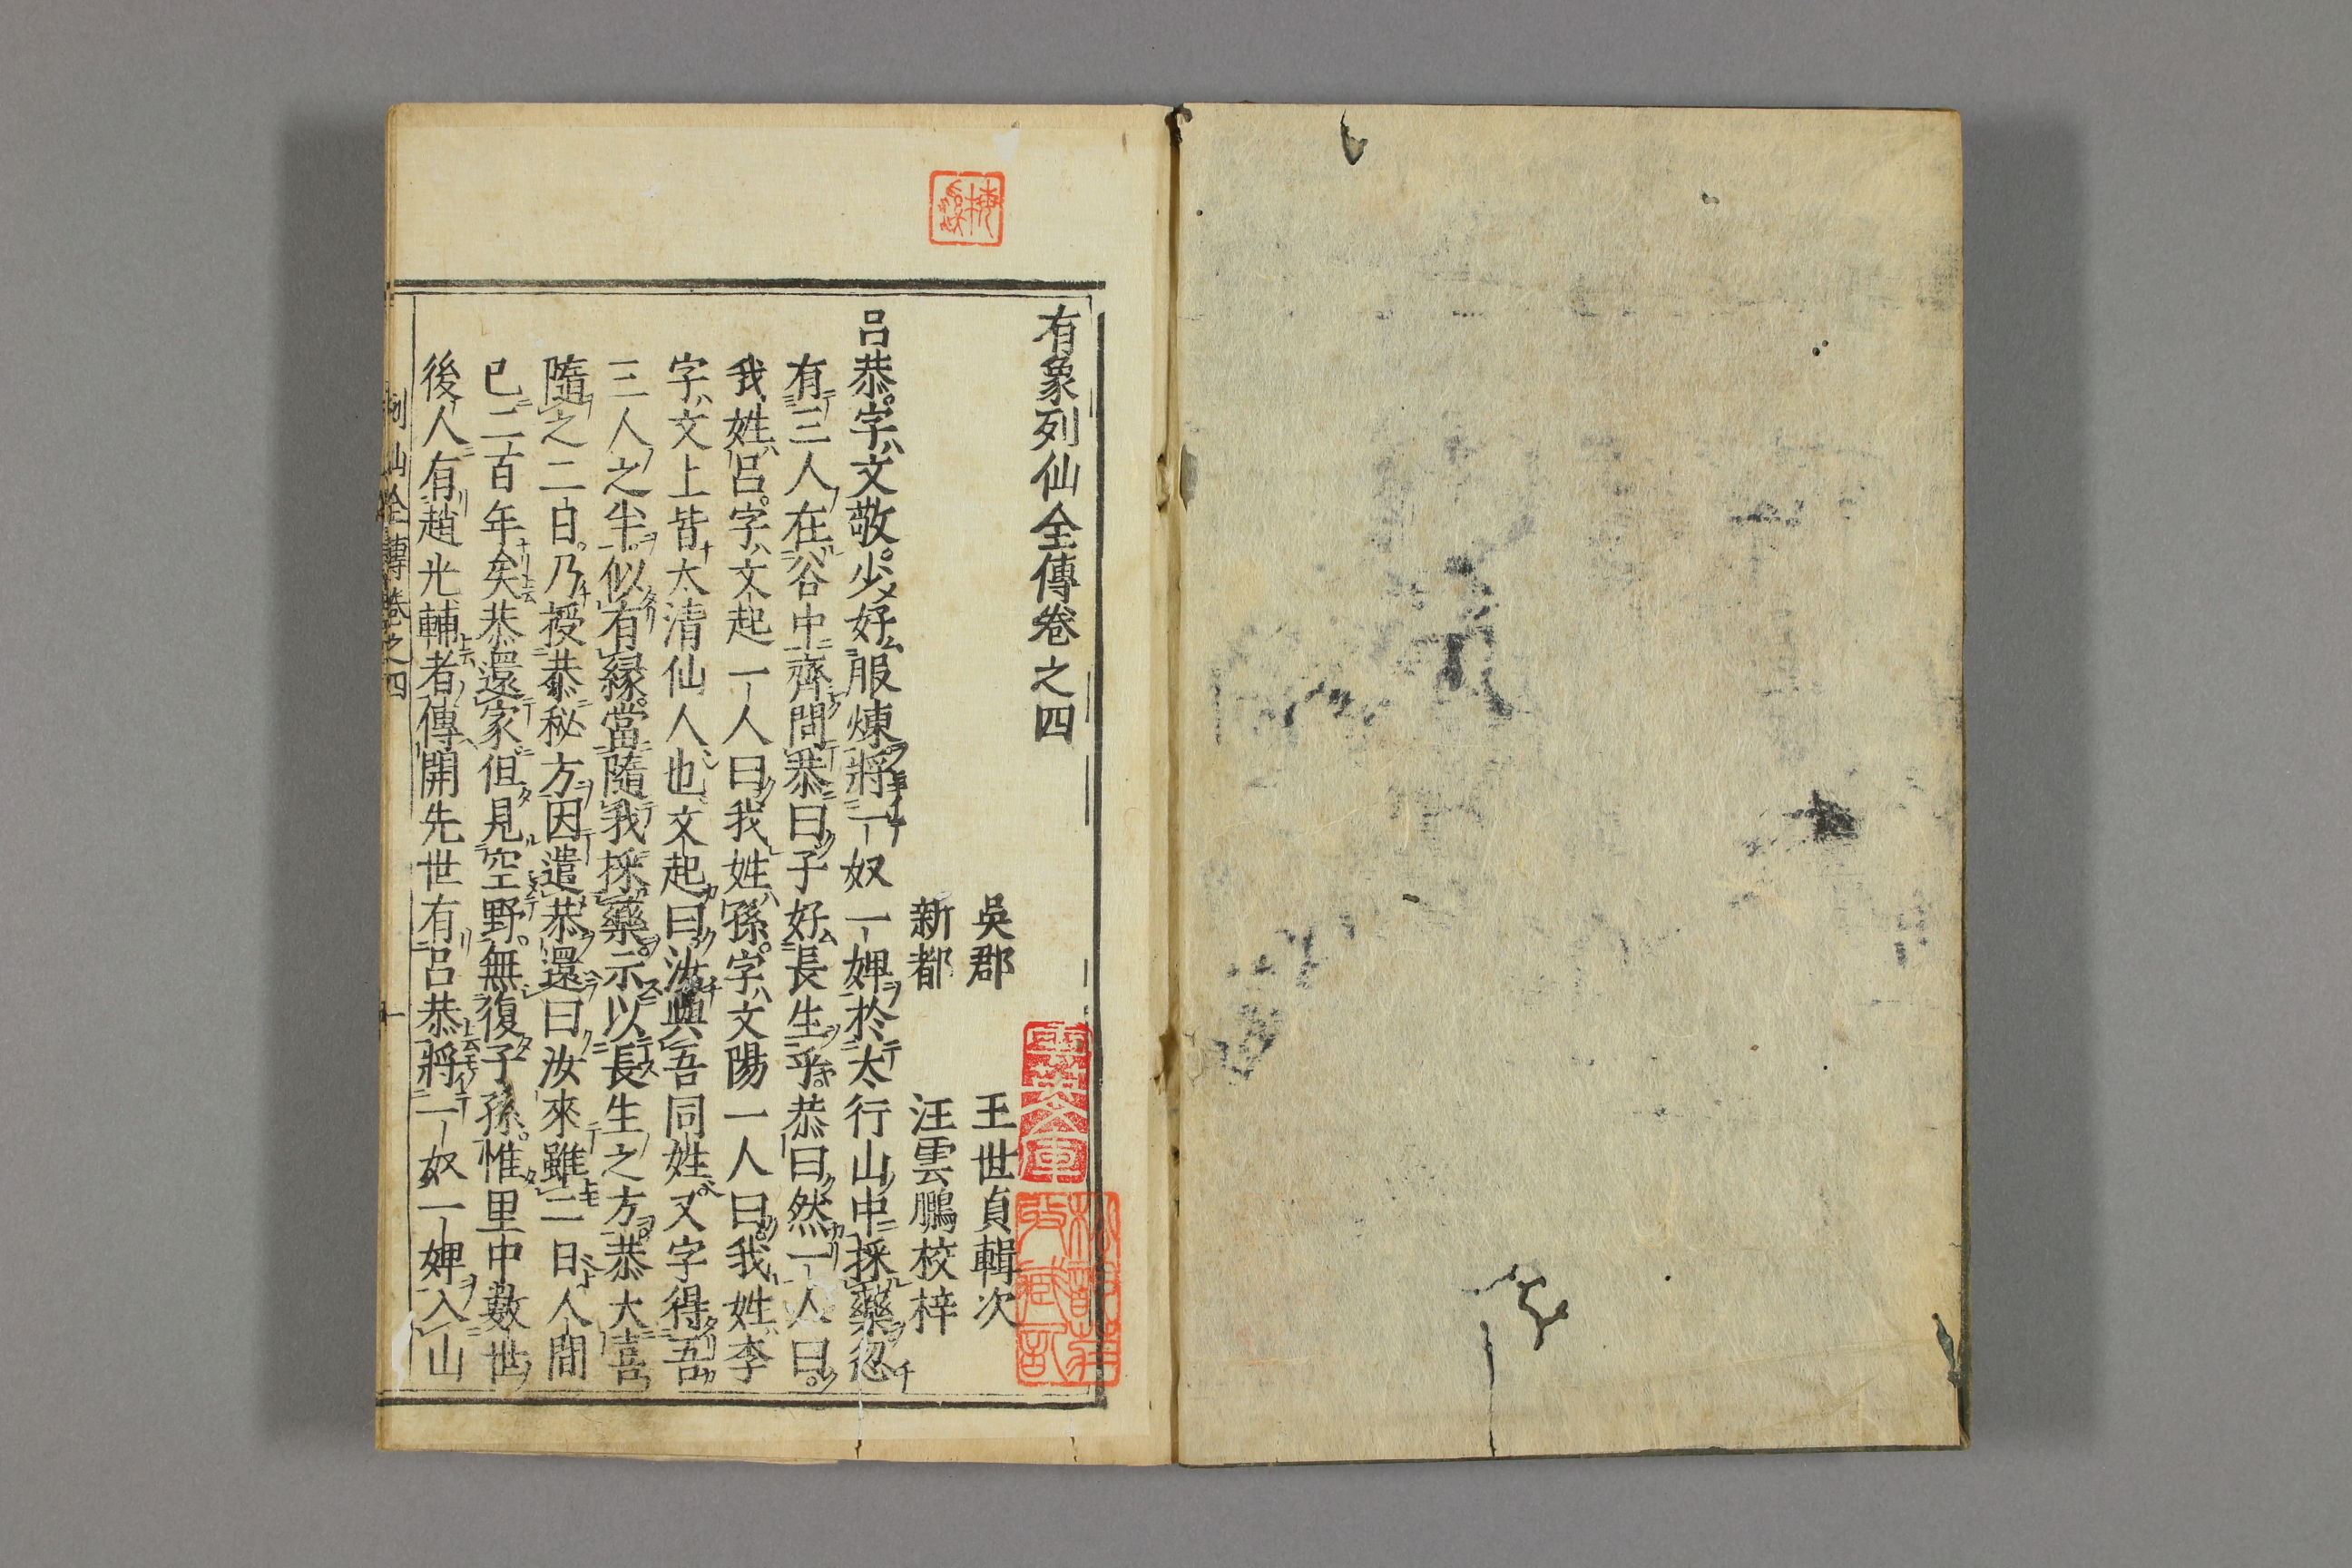 有象列仙全傳卷之四
吳郡 王世貞輯次
新都 汪雲鵬校梓
呂恭字文敬少好服煉將一奴一婢於太行山中採藥忽
有三人在谷中齊問恭曰子好長生乎恭曰然一人曰
我姓呂字文起一人曰我姓孫字文陽一人曰我姓李
字文上皆太清仙人也文起曰汝與吾同姓又字得吾
三人之半似有緣當隨我採藥示以長生之方恭大喜
隨之二日乃授恭秘方因遣恭還曰汝來雖二日人間
已二百年矣恭還家但見空野無復子孫惟里中數世
後人有趙光輔者傳開先世有呂恭將一奴一婢入山
列仙全傳卷之四 一